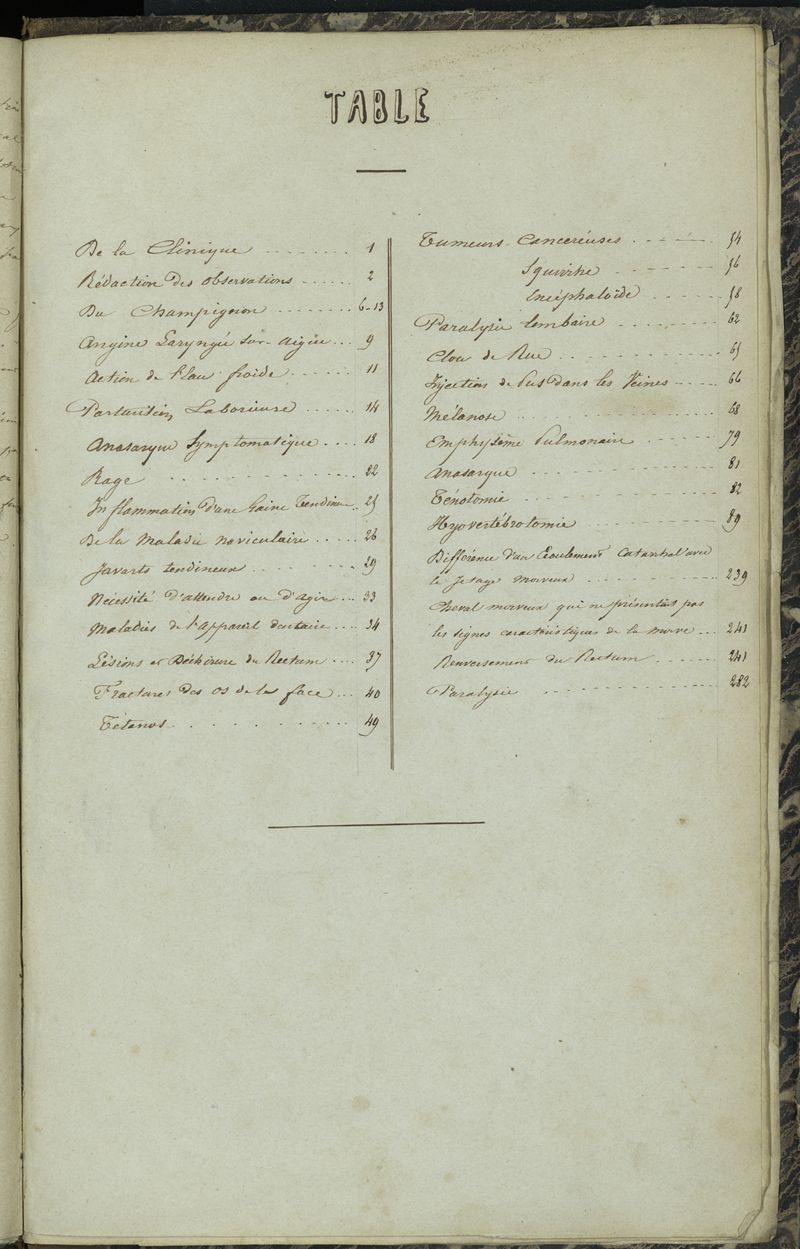 TABLE
De la Clinique ........ 1
Rédaction des observations ...... 2
Du Champignon ........ 6-13
Angine Laryngée sur-aigüe ... 9
Action de l'eau froide ...... 11
Parturition Laborieuse ..... 14
Anasarque Symptomatique .... 18
Rage .......... 22
Inflammation d'une Gaine Tendineuse .. 25
De la Maladie naviculaire ..... 26
Javarts tendineux ........ 29
Nécessité d'attendre ou d'agir ... 33
Maladies de l'appareil dentaire .... 34
Lésions et Déchirure du Rectum .... 37
Fractures des os de la face ... 40
Tétanos .......... 49
Tumeurs Cancéreuses ...... 54
Squirrhe ...... 56
Encéphaloïde ..... 58
Paralysie lombaire ........ 62
Clou de Rue ......... 65
Injection de Pus dans les Veines ..... 66
Mélanose .......... 68
Emphysème Pulmonaire ...... 79
Anasarque .......... 81
Tenotomie .......... 82
Hyovertébrotomie ........ 89
Différence d'un Ecoulement Catarrhal avec
le Jetage Morveux ......... 239
Cheval morveux qui ne présentait pas
les signes caractéristiques de la morve ... 241
Renversement du Rectum ...... 241
Paralysie ............ 282